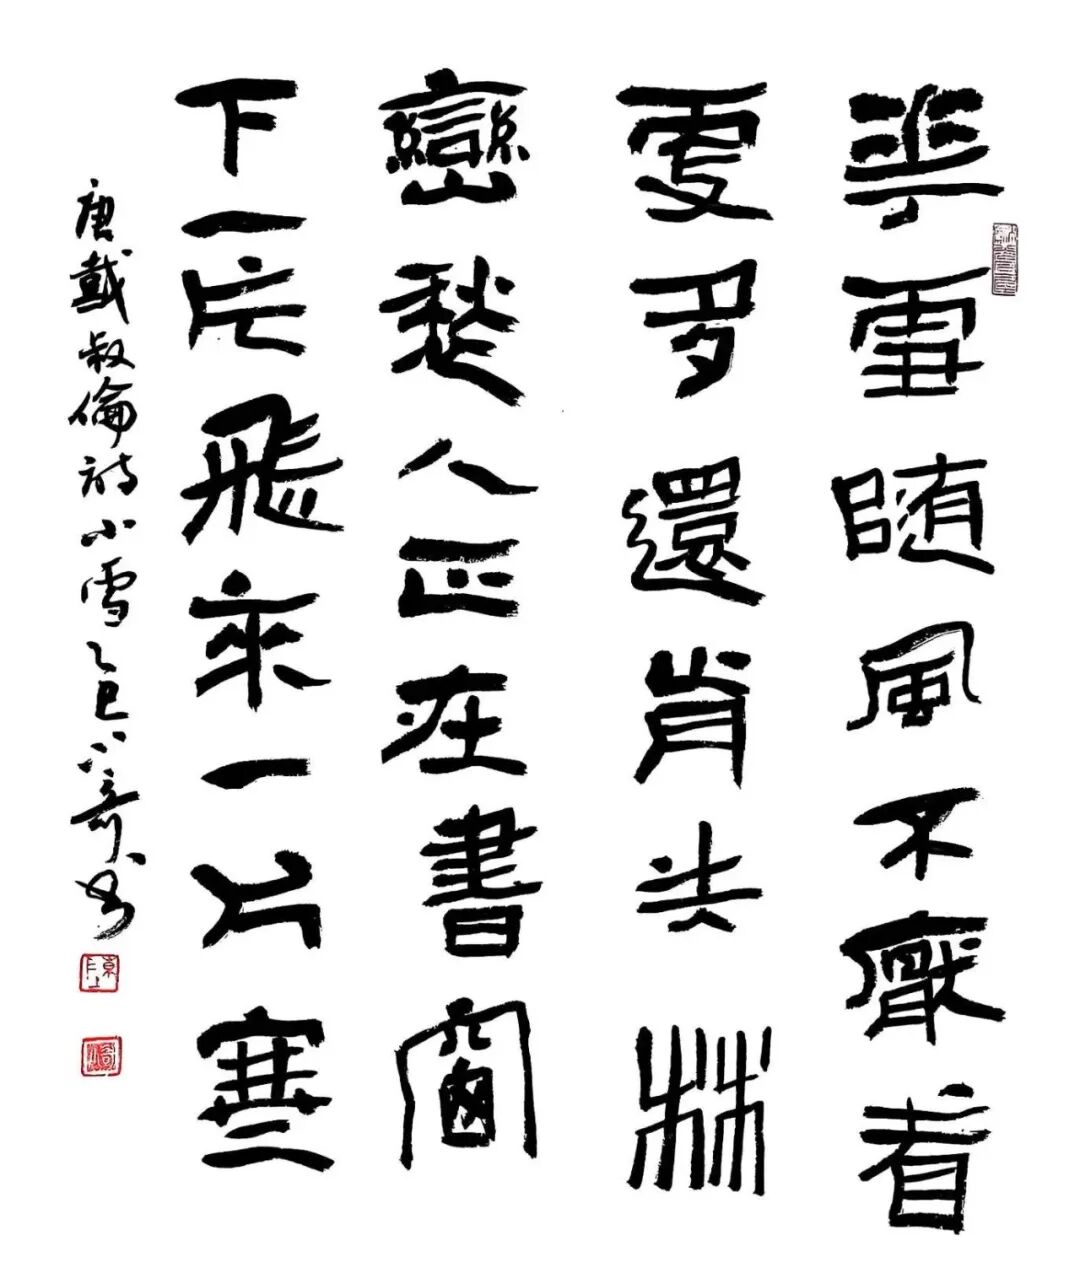 華雪随風不厭看
更多還肯失林
巒愁人正在書窗
下一片飛來一片寒
唐戴叔倫詩小雪乙巳書